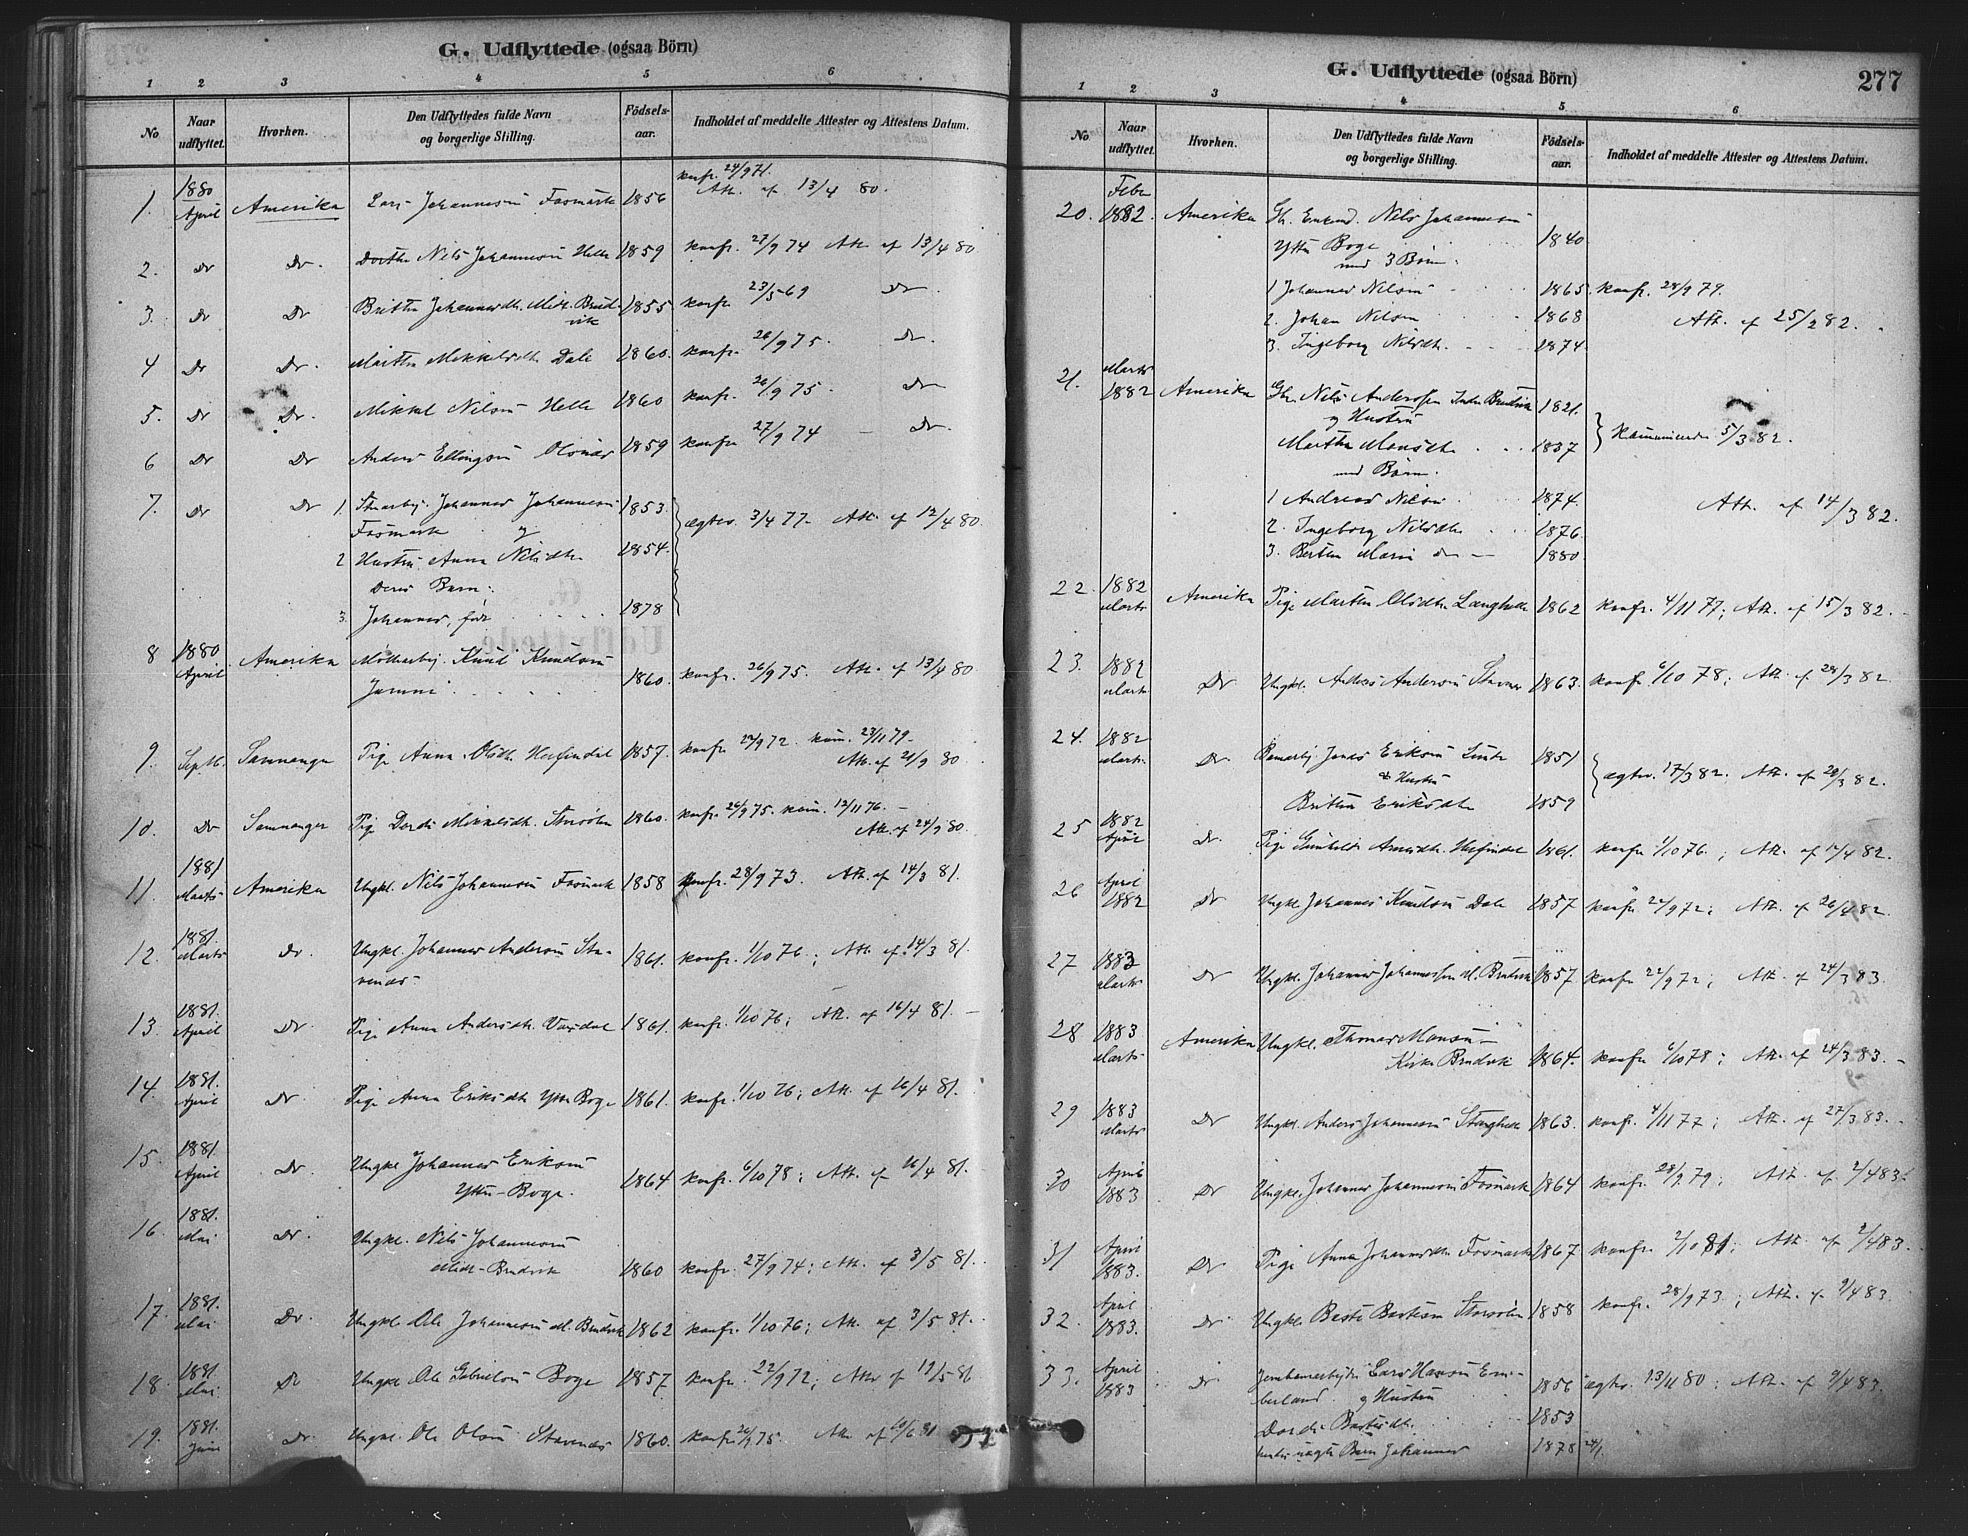 G. Udflyttede (ogsaa Börn)
1 2 3 4 5 6
No Naar udflyttet. Hvorhen. Den Udflyttedes fulde Navn og borgerlige Stilling. Födsels-aar. Indholdet af meddelte Attester og Attestens Datum.
1. 1880 April Amerika Lars Johannesen Fosmark 1856 konf. 24/9 71. Att. af 13/4 80.
2. Do Do. Nils Johannesen Helle 1859 konfr. 27/9 74 Att. af 13/4 80
3. Do Do Brithe Johannesdtr. Midt. Brudvik 1855 konfr 23/5 69 Do
4 Do Do. Marthe Mikkelsdtr. Dale 1860. konfr. 26/9 75. Do.
5. Do Do. Mikkel Nilsen Helle 1860 konfr. 26/9 75 Do
6 Do Do Anders Ellingsen Olsnes 1859 konfr 27/9 74 – Do.
7. Do Do 1. Johannes Johannesen 1853.
Fosmark og
ægtev. 3/4 77. Att. af 12/4 80.
2 Hustru Anna Nilsdtr 1854.
Deres Barn:
3. Johannes, født 1878
8 1880 April Amerika Knud Knudsen
1860. konfr. 26/9 75. Att. af 13/4 80
9. Septb. Samnanger Pige Anna Olsdtr. Herfindal 1857. konfr 22/9 72. kom. 23/11 79 – Att. af 21/9 80
10. Do Samnanger Pige Dordi Mikkelsdtr. Storsølen 1860. konfr. 26/9 75. kom. 12/11 76. – Att. af 24/9 80.
11. 1881 Marts Amerika Ungkl. Nils Johannesen Fosmark 1858 konfr. 28/9 73. Att. af 14/3 81.
12. 1881. Marts Do. Ungkl. Johannes Andersen Stavenæs. 1861. konfr. 1/10 76; Att. af 14/3 81.
13. 1881. April Do. Pige Anna Andersdtr. Vaxdal 1861. konfr. 1/10 76; Att. af 16/4 81. –
14. 1881. April Do Pige Anna Eriksdtr Yttre Boge 1861. konfr. 1/10 76; Att. af 16/4 81.
15. 1881. April Do. Ungkl Johannes Eriksen
Yttre-Boge. 1864 konfr. 6/10 78; Att. af 16/4 81.
16. 1881. Mai Do. Ungkl. Nils Johannesen
Midt-Brudvik 1860 konfr. 27/9 74; Att. af 3/5 81.
17. 1881. Mai Do. Ungkl Ole Johannesen M. Brudvik 1862 konfr. 1/10 76; Att. af 3/5 81.
18. 1881. Mai. Do Ungkl. Ole Gabrielsen Boge 1857 konfr. 22/9 72; Att. af 12/5 81
19. 1881. Juni Do. Ungkl. Ole Olsen Stavenæs 1860. konfr 26/9 75. Att. af 10/6 81
G. Udflyttede (ogsaa Börn) 277
1 2 3 4 5 6
No Naar udflyttet. Hvorhen. Den Udflyttedes fulde Navn og borgerlige Stilling. Födsels-aar. Indholdet af meddelte Attester og Attestens Datum.
20. Febr 1882. Amerika Gb. Enkem. Nils Johannesen
Yttre Boge 1840
med 3 Børn.
1 Johannes Nilsen 1865. konfr. 28/9 79.
2. Johan Nilsen 1868 Att. af 25/2 82.
3. Ingeborg Nilsdtr. 1874.
21. Marts 1882 Amerika Gbr. Nils Anderssen Indre Brudvik 1821.
og Hustru
kommunicerede 5/3 82.
Martha Monsdtr 1837
med Børn.
1 Andreas Nilsen 1874. Att. af 14/3 82.
2. Ingeborg Nilsdtr 1876.
3. Berthe Marie do – 1880
22. 1882 Marts Amerika Pige Marthe Olsdtr. Langhelle 1862 konfr. 4/11 77; Att. af 15/3 82. –
23. 1882 Marts. Do Ungkl. Anders Andersen 1863. konfr. 6/10 78; Att. af 28/3 82.
24. 1882 Marts. Do. Jonas Eriksen 1851
& Hustru
ægtev. 17/3 82. Att. af 28/3 82.
Brithe Eriksdtr 1859
25 1882 April Do. Pige Gunhild Arnesdtr. Herfindal 1861. konfr 1/10 76; Att. af 17/4 82.
26 April 1882 Do Ungkl Johannes Knudsen Dale 1857 konfr 22/9 72; Att. af 26/4 82.
27 1883 Marts Do Ungkl. Johannes Johannessen M. Brudvik 1857 konfr 22/9 72; Att. af 24/3 83.
28 1883 Marts Amerika Ungkl. Thomas Monsen –
Kirke Brudvik 1864. konfr 6/10 78; Att. af 24/3 83. –
29 1883 Marts Do Ungkl. Anders Johannesen Stanghelle 1863. konfr. 4/11 77; Att. af 27/3 83. –
30 April 1883 Do Ungkl. Johannes Johannesen Fosmark 1864 konfr. 28/9 79; Att. af 2/4 83.
31 April 1883. Do Pige Anna Johannesdtr. Fosmark 1867 konfr. 2/10 81; Att. af 2/4 83.
32. April 1883. Do. Ungkl. Baste Bastesen Storsølen 1858 konfr. 28/9 73.; Att. af 9/4 83.
33. April 1883 Do Jernbanearbeider Lars Hansen
og Hustru 1856 ægtev. 13/11 80; Att. af 9/4 83.
Dordei Bastesdtr. 1853
uægte Barn Johannes 1878 24/1.